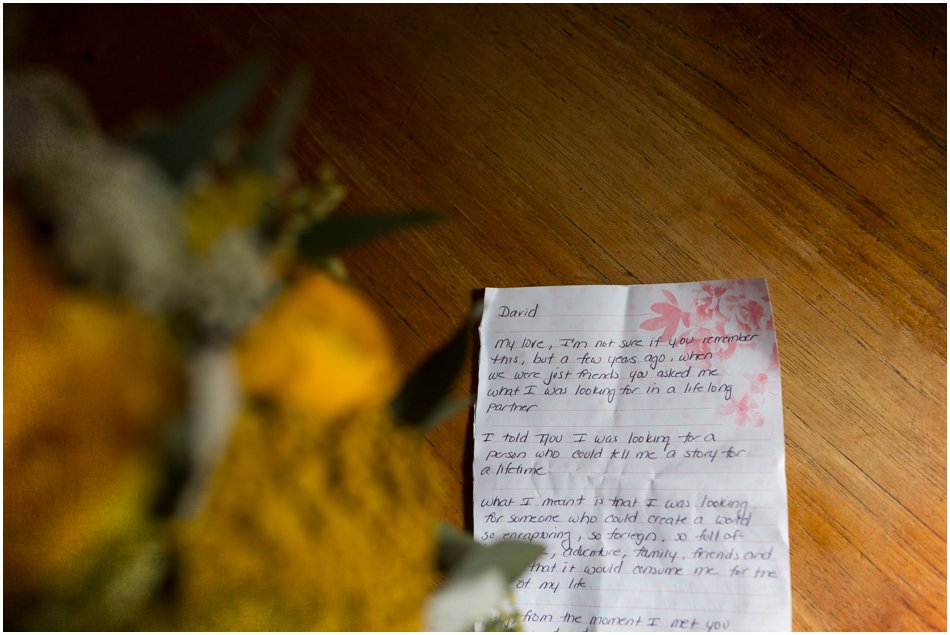 David
My love, I'm not sure if you remember
this, but a few years ago, when
we were just friends you asked me
what I was looking for in a life long
partner
I told you I was looking for a
person who could tell me a story for
a lifetime
What I meant is that I was looking
for someone who could create a world
so enrapturing, so foriegn, so full of
, adventure, family, friends and
that it would consume me for the
of my life.
from the moment I met you